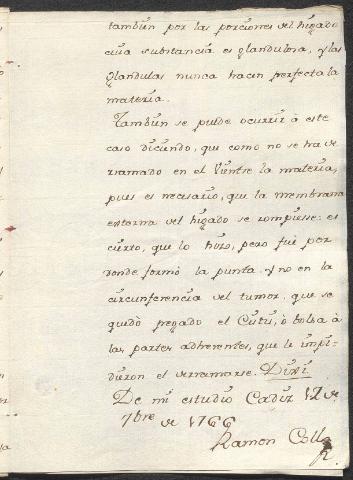 tambien por las porciones del higado
cuia substancia es glandulosa, y las
glandulas nunca hacen perfecta la
materia.
Tambien se puede ocurrir à este
caso diciendo, que como no se ha de
rramado en el Vientre la materia,
pues es necesario, que la membrana
externa del higado se rompiese: es
cierto, que lo hizo, pero fue por
donde formò la punta y no en la
circunferencia del tumor, que se
quedò pegado el Cutis, ò bolsa à
las partes adherentes, que le impi-
dieron el derramarse. Dixi
De mi estudio Cadiz 12 de
7bre de 1766
Ramon